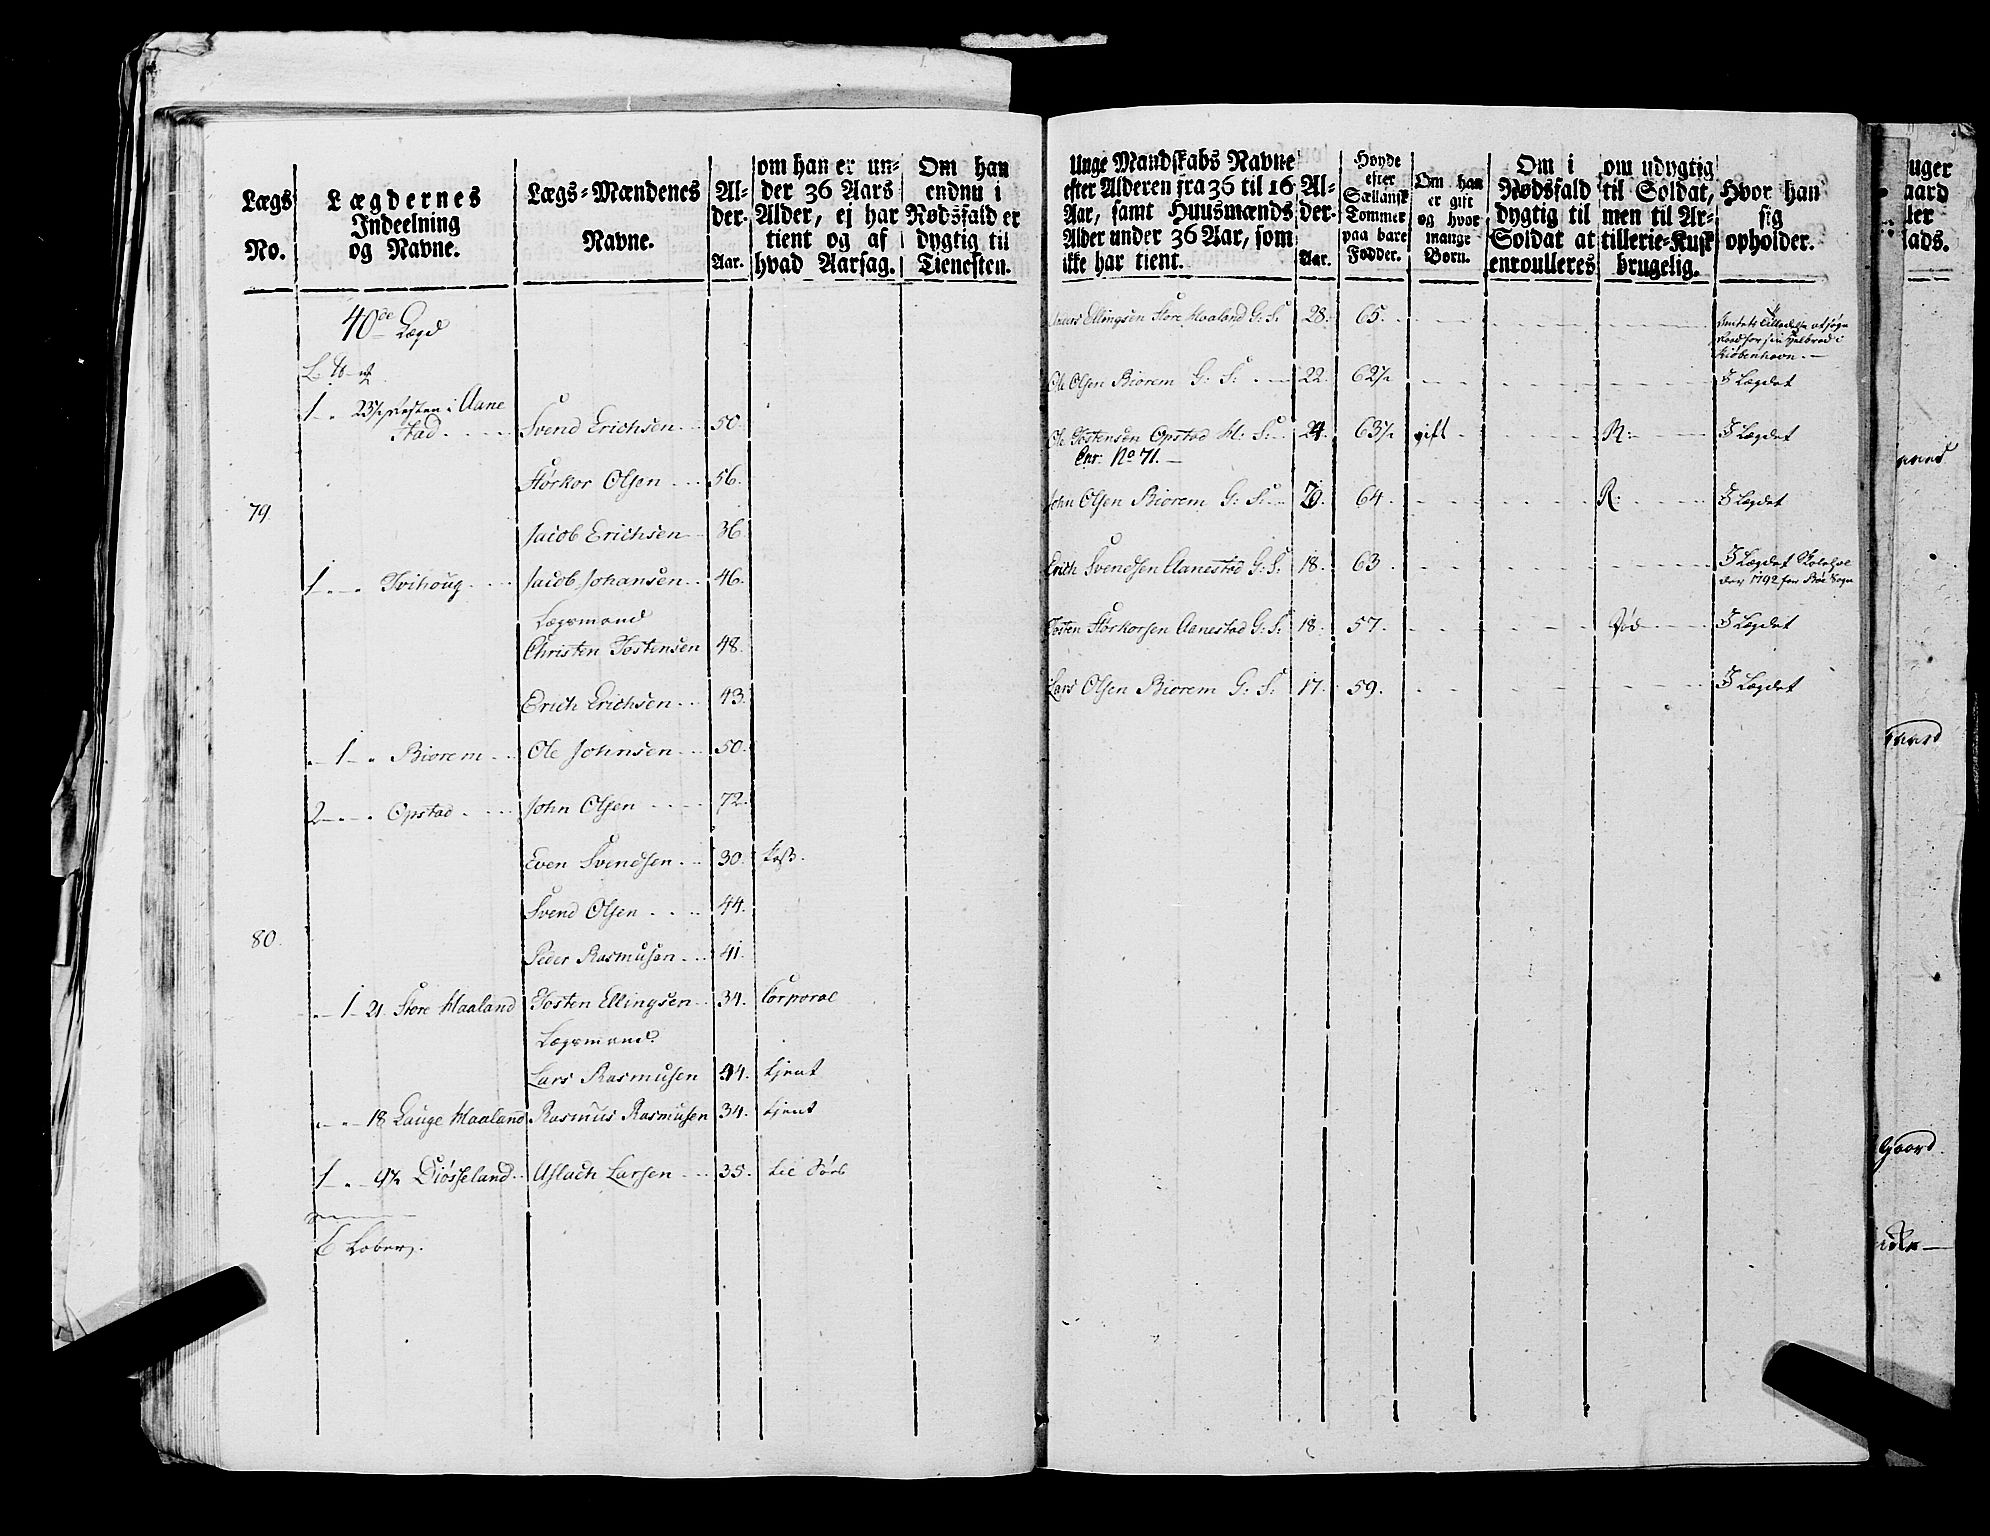 Lægs No.
Lægdernes Indeelning og Navne.
Lægs-Mændenes Navne.
Al-der. Aar.
om han er un-der 36 Aars Alder, ej har tient og af hvad Aarsag.
Om han endnu i Nødsfald er dygtig til Tienesten.
40de Lægd
1 - 23½ Resten i Aane
stad Svend Erichsen 50.
Størkor Olsen 56.
79.
Jacob Erichsen 36
1 Tvihoug Jacob Johansen 46.
Lægsmand
Christen Tostensen 48.
Erich Erichsen 43.
1 Biorem Ole Johnsen 50.
2 Opstad John Olsen 72.
Even Svendsen 30.
Svend Olsen 44.
80.
Peder Rasmusen 41.
1 21 Store Maaland Tosten Ellingsen 34. Corporal
Lægsmand.
Lars Rasmusen 44. tjent
18 Lauge Maaland Rasmus Rasmusen 34. tjent
1 4½ Diøsseland Aslach Larsen 35.
6 Løber.
Unge Mandskabs Navne efter Alderen fra 36 til 16 Aar, samt Huusmænds Alder under 36 Aar, som ikke har tient.
Al-der. Aar.
Høyde efter Sællansk Tommer paa bare Fødder.
Om han er gift og hvor mange Børn.
Om i Nødsfald dygtig til Soldat at enroulleres
om udygtig til Soldat, men til Ar-tillerie-Kusk brugelig.
Hvor han sig opholder.
Ellingsen Store Maaland G: S: 28. 65.
Kiøbenhavn.
Ole Olsen Biorem G: S: 22. 62½ I Lægdet
Ole Tostensen Opstad H: S: 24. 63½ gift R: I Lægdet
Enr: No 71.
John Olsen Biorem G: S: 20. 64. R: I Lægdet
Erich Svendsen Aanestad G: S: 18. 63 I Lægdet Skolehol
der 1792 for Sogn
Tosten Størkorsen Aanestad G: S: 18. 57. I Lægdet
Lars Olsen Biorem G: S: 17. 59. I Lægdet
uger
aard
ler
lads.
Gaard.